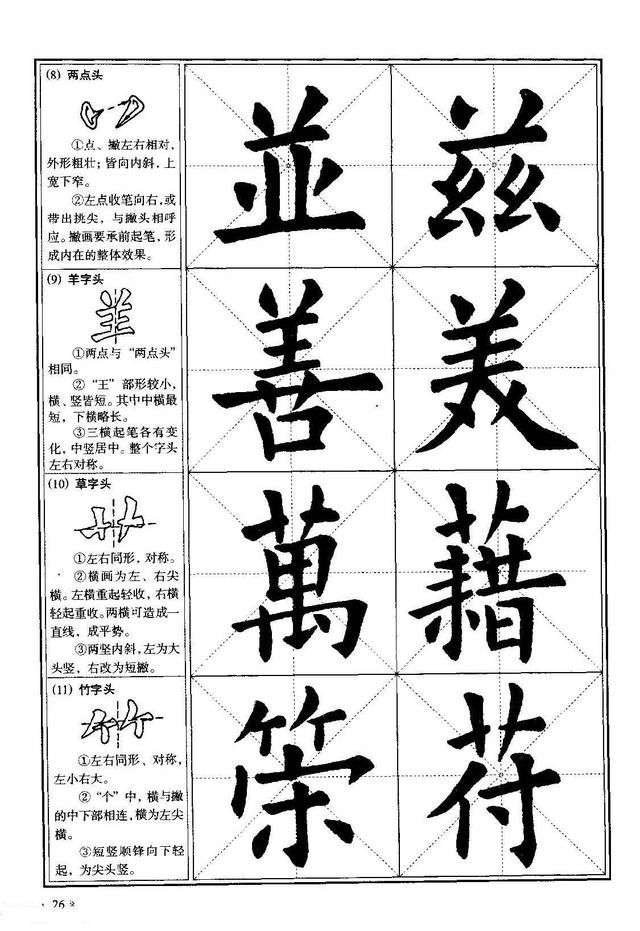 (8) 两点头
①点、撇左右相对,
外形粗壮;皆向内斜,上
宽下窄。
②左点收笔向右,或
带出挑尖,与撇头相呼
应。撇画要承前起笔,形
成内在的整体效果。
並 茲
(9) 羊字头
①两点与“两点头”
相同。
②“王”部形较小,
横、竖皆短。其中中横最
短,下横略长。
③三横起笔各有变
化,中竖居中。整个字头
左右对称。
善 美
(10) 草字头
①左右同形,对称。
②横画为左、右尖
横。左横重起轻收,右横
轻起重收。两横可造成一
直线,成平势。
③两竖内斜,左为大
头竖,右改为短撇。
萬 藉
(11) 竹字头
①左右同形、对称,
左小右大。
②“个”中,横与撇
的中下部相连,横为左尖
横。
③短竖顺锋向下轻
起,为尖头竖。
策 苻
26